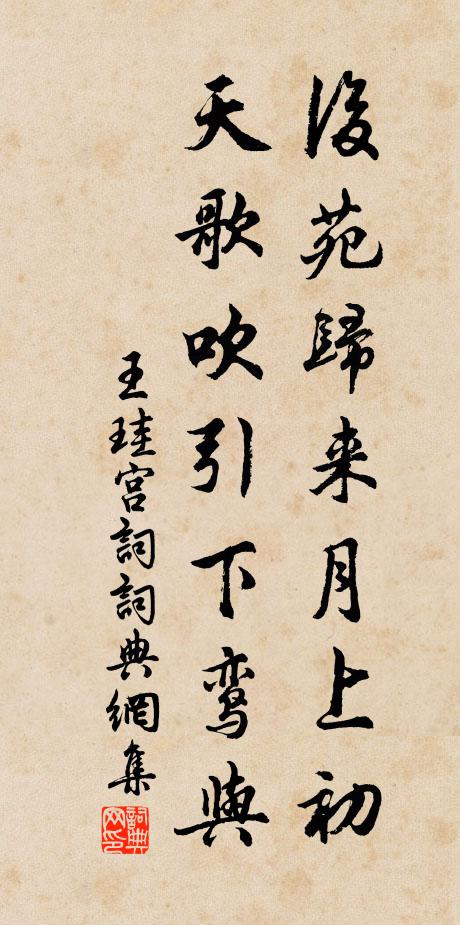 後苑歸来月上初
天歌吹引下鸾輿
王珪宫詞詞典網集
詞典网印